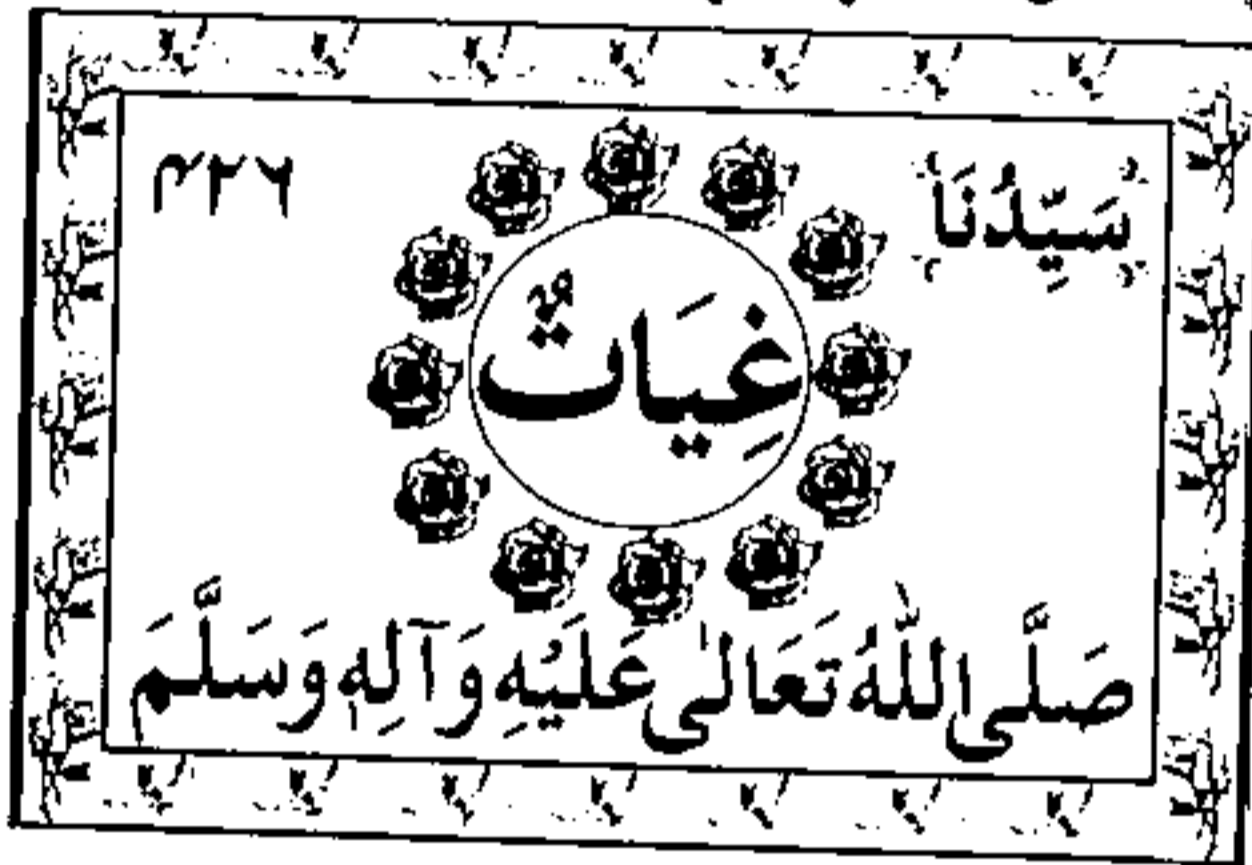 سَيِّدُنَا ۴۲۶
غِيَاثٌ
صَلَّى اللّٰهُ تَعَالٰى عَلَيْهِ وَآلِهٖ وَسَلَّمَ